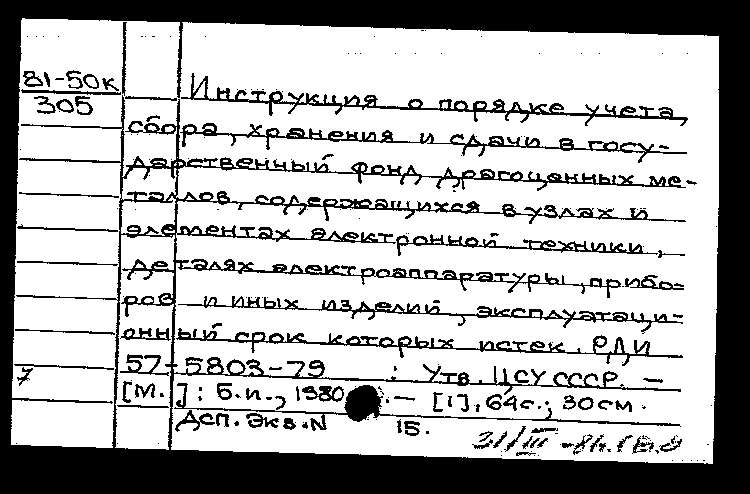 81-50к
305
Инструкция о порядке учета,
сбора, хранения и сдачи в госу-
дарственный фонд драгоценных ме-
таллов, содержащихся в узлах и
элементах электронной техники,
деталях электроаппаратуры, прибо-
ров и иных изделий, эксплуатаци-
онный срок которых истек. РДИ
57-5803-79 : Утв. ЦСУ СССР. —
7
[М.]: Б.и., 1980. — [1], 64с.; 30см.
Дсп. Экз. N 15.
31/III-81г.